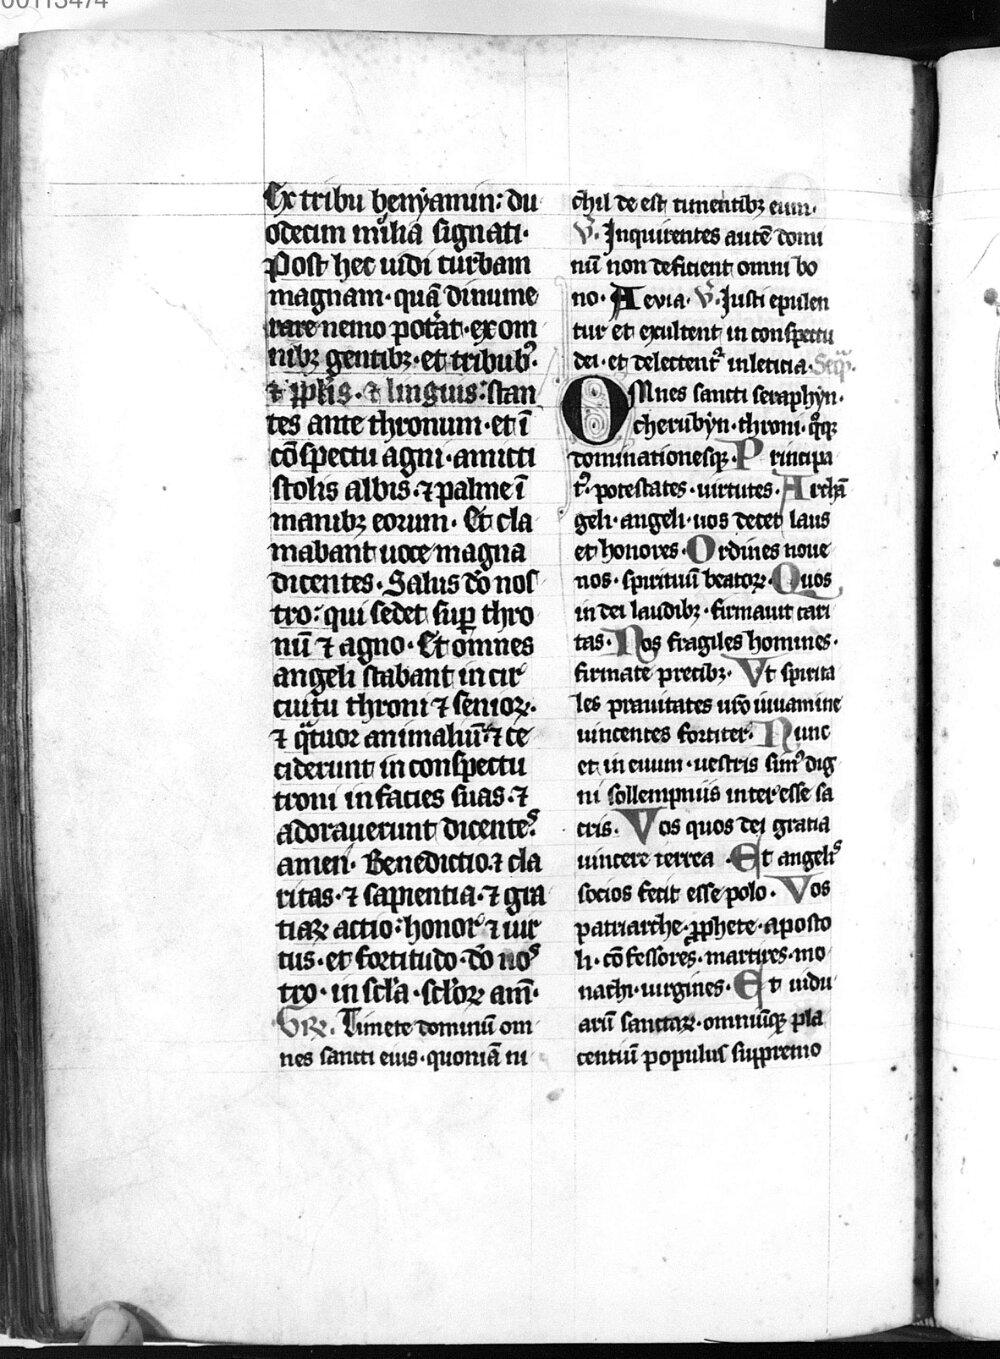 00113474
Ex tribu benẏamin: du
odecim milia signati·
Post hec uidi turbam
magnam· quā dinume
rare nemo potat· ex om
nibꝫ gentibꝫ· et tribubꝰ·
⁊ ppl̄is· ⁊ linguis: stan
tes ante thronum· et ī
cōspectu agni· amicti
stolis albis· ⁊ palme ī
manibꝫ eorum· Et cla
mabant uoce magna
dicentes· Salus dō nos
tro: qui sedet suꝑ thro
nū ⁊ agno· Et omnes
angeli stabant in cir
cuitu throni ⁊ senioꝝ·
⁊ qͣtuor animaliū· ⁊ ce
ciderunt in conspectu
troni in facies suas· ⁊
adorauerunt dicenteˢ·
amen· Benedictio· ⁊ cla
ritas· ⁊ sapientia· ⁊ gra
tiaꝝ actio: honor ⁊ uir
tus· et fortitudo· dō noˢ
tro· in scl̄a· scl̄oꝝ am̄·
Timete dominū om
nes sancti eius· quoniā ni
chil de est timentibꝫ eum·
V̄· Inquirentes autē domi
nū non deficient omni bo
no· Aevia· V̄· Iusti epulen
tur et exultent in conspectu
dei· et delectentᷣ in leticia· Seqͣ·
OMnes sancti seraphẏn·
cherubẏn· throni· qͦqꝫ
dominationesqꝫ· Principa
tꝰ· potestates· uirtutes· Archā
geli· angeli· uos decet laus
et honores· Ordines noue
nos· spirituū beatoꝝ· Quos
in dei laudibꝫ· firmauit cari
tas· Nos fragiles homines·
firmate precibꝫ· Vt spirita
les prauitates ur̄o iuuamine
uincentes fortiter· Nunc
et in euum· uestris simꝰ dig
ni sollempniis interesse sa
cris· Vos quos dei gratia
uincere terrea· Et angeliˢ
socios fecit esse polo· Vos
patriarche· ꝓphete· aposto
li· cōfessores· martires· mo
nachi· uirgines· Et uidu
arū sanctaꝝ· omniūqꝫ pla
centiū populus suppremo